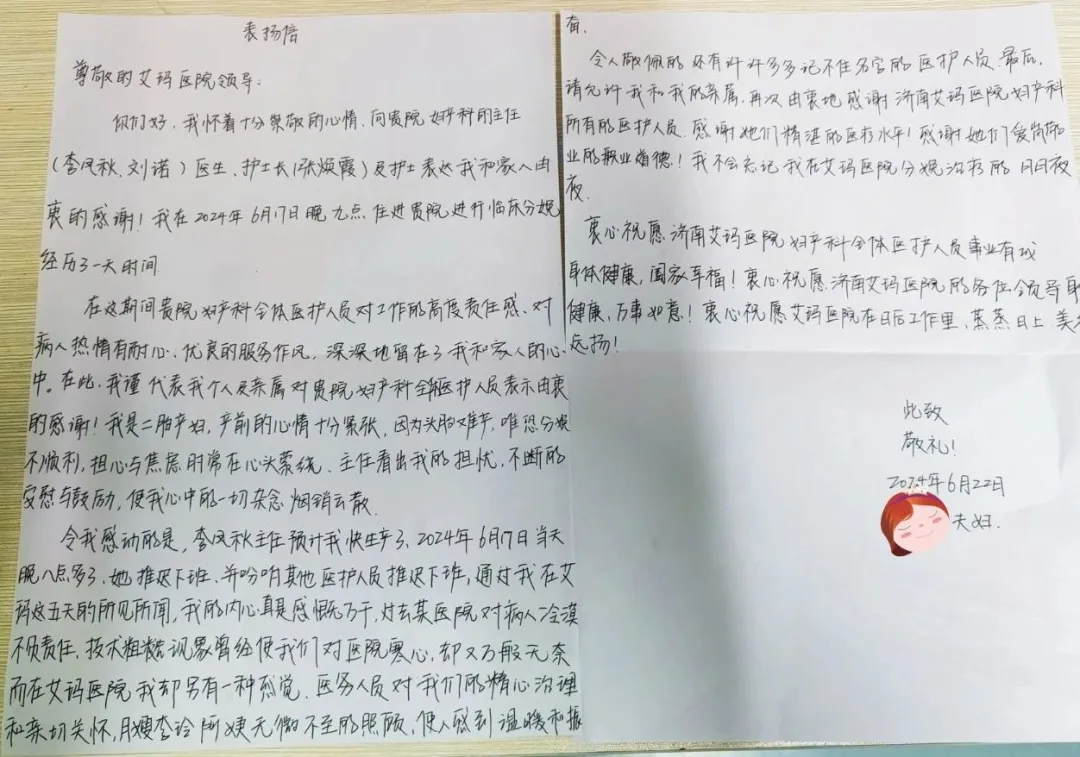 表扬信
尊敬的艾玛医院领导:
你们好,我怀着十分崇敬的心情,向贵院妇产科的主任
(李凤秋、刘诺)医生、护士长(张焕霞)及护士表达我和家人由
衷的感谢!我在2024年6月17日晚九点住进贵院进行临床分娩
经历了一天时间
在这期间贵院妇产科全体医护人员对工作的高度责任感、对
病人热情有耐心、优良的服务作风,深深地留在了我和家人的心
中。在此,我谨代表我个人及亲属对贵院妇产科全体医护人员表示由衷
的感谢!我是二胎产妇,产前的心情十分紧张,因为头胎难产,唯恐分娩
不顺利,担心与焦虑时常在心头萦绕.主任看出我的担忧,不断的
安慰与鼓励,使我心中的一切杂念烟销云散.
令我感动的是,李凤秋主任预计我快生产了、2024年6月17日当天
晚八点多了、她推迟下班、并吩咐其他医护人员推迟下班,通过我在艾
玛这五天的所见所闻,我的内心真是感慨万千,过去某医院对病人冷漠
不负责任、技术粗糙现象曾经使我们对医院寒心,却又万般无奈
而在艾玛医院我却另有一种感觉.医务人员对我们的精心治理
和亲切关怀,月嫂李玲阿姨无微不至的照顾,使人感到温暖和振
奋.
令人敬佩的还有许许多多记不住名字的医护人员.最后,
请允许我和我的亲属,再次由衷地感谢济南艾玛医院妇产科
所有的医护人员.感谢她们精湛的医疗水平!感谢她们爱岗敬
业的职业道德!我不会忘记我在艾玛医院分娩治疗的日日夜
夜.
衷心祝愿济南艾玛医院妇产科全体医护人员事业有成
身体健康,阖家幸福!衷心祝愿济南艾玛医院的各位领导身
健康,万事如意!衷心祝愿艾玛医院在日后工作里,蒸蒸日上、美名
远扬!
此致
敬礼!
2024年6月22日
夫妇.